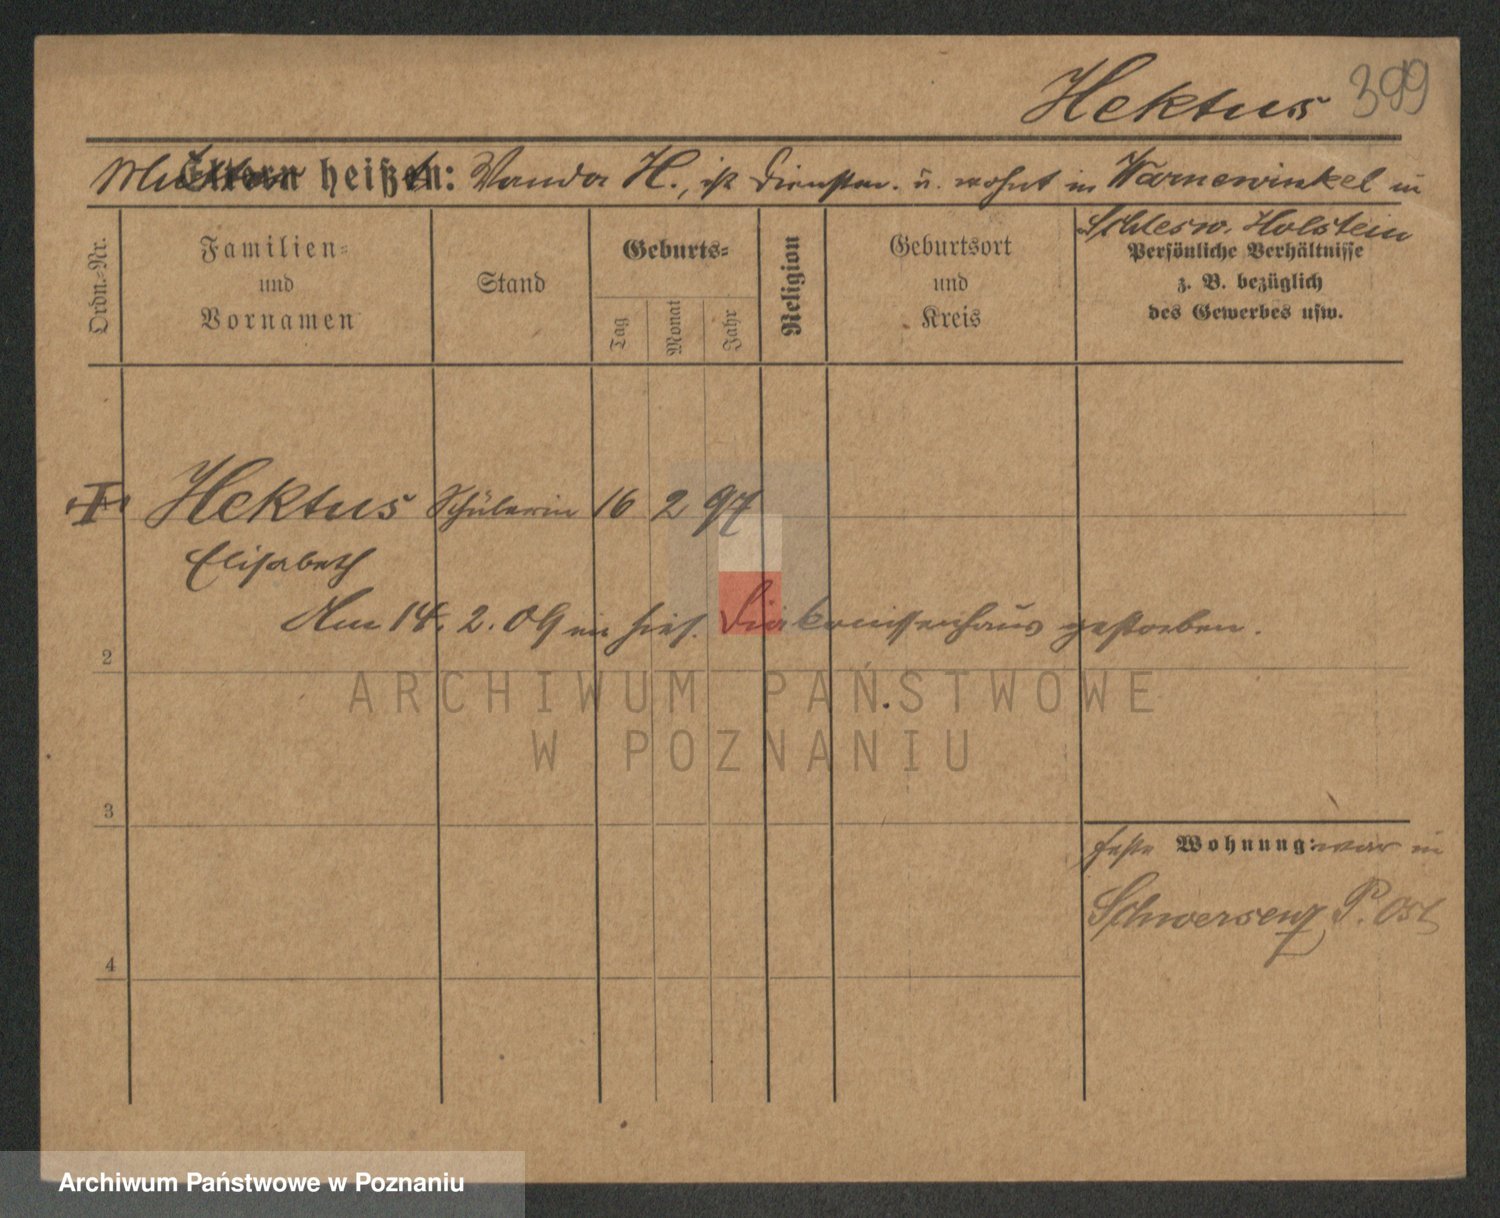 Hektus 399
Mutter heißt: Wanda H., ist Dienstm. u. wohnt in Warnewinkel in
Schlesw. Holstein
Ordn.-Nr.
Familien-
und
Vornamen
Stand
Geburts-
Tag
Monat
Jahr
Religion
Geburtsort
und
Kreis
Persönliche Verhältnisse
z. B. bezüglich
des Gewerbes usw.
Hektus Schülerin 16 2 97
Elisabeth
Am 14. 2. 09 im hies. Diakonissenhaus gestorben.
2
ARCHIWUM PAŃSTWOWE
W POZNANIU
3
feste Wohnung: war in
Schwersenz P. Ost
4
Archiwum Państwowe w Poznaniu